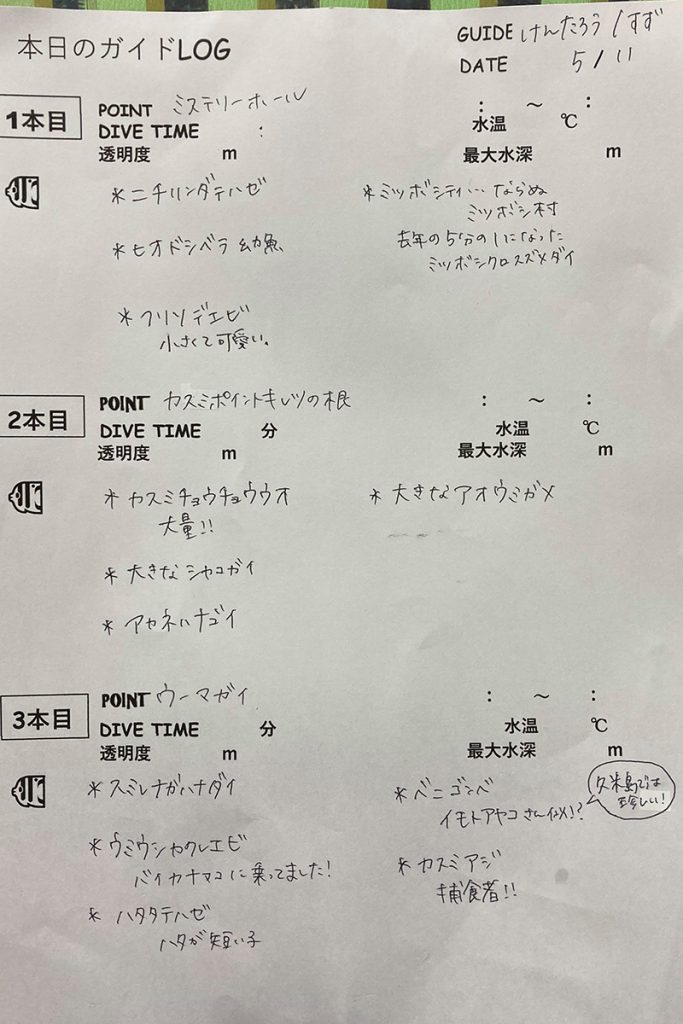 本日のガイドLOG
GUIDE けんたろう/すず
DATE 5/11
1本目
POINT ミステリーホール
: ~ :
DIVE TIME :
水温 ℃
透明度 m
最大水深 m
*ニチリンダテハゼ
*ヒオドシベラ幼魚
*フリソデエビ
小さくて可愛い。
*ミツボシティ…ならぬ
ミツボシ村
去年の5分の1になった
ミツボシクロスズメダイ
2本目
POINT カスミポイントキレツの根
: ~ :
DIVE TIME 分
水温 ℃
透明度 m
最大水深 m
*カスミチョウチョウウオ
大量!!
*大きなシャコガイ
*アカネハナゴイ
*大きなアオウミガメ
3本目
POINT ウーマガイ
: ~ :
DIVE TIME 分
水温 ℃
透明度 m
最大水深 m
*スミレナガハナダイ
*ウミウシカクレエビ
バイカナマコに乗ってました!
*ハタタテハゼ
ハタが短い子
*ベニゴンベ
イモトアヤコさん似!?
久米島では
珍しい!
*カスミアジ
捕食者!!